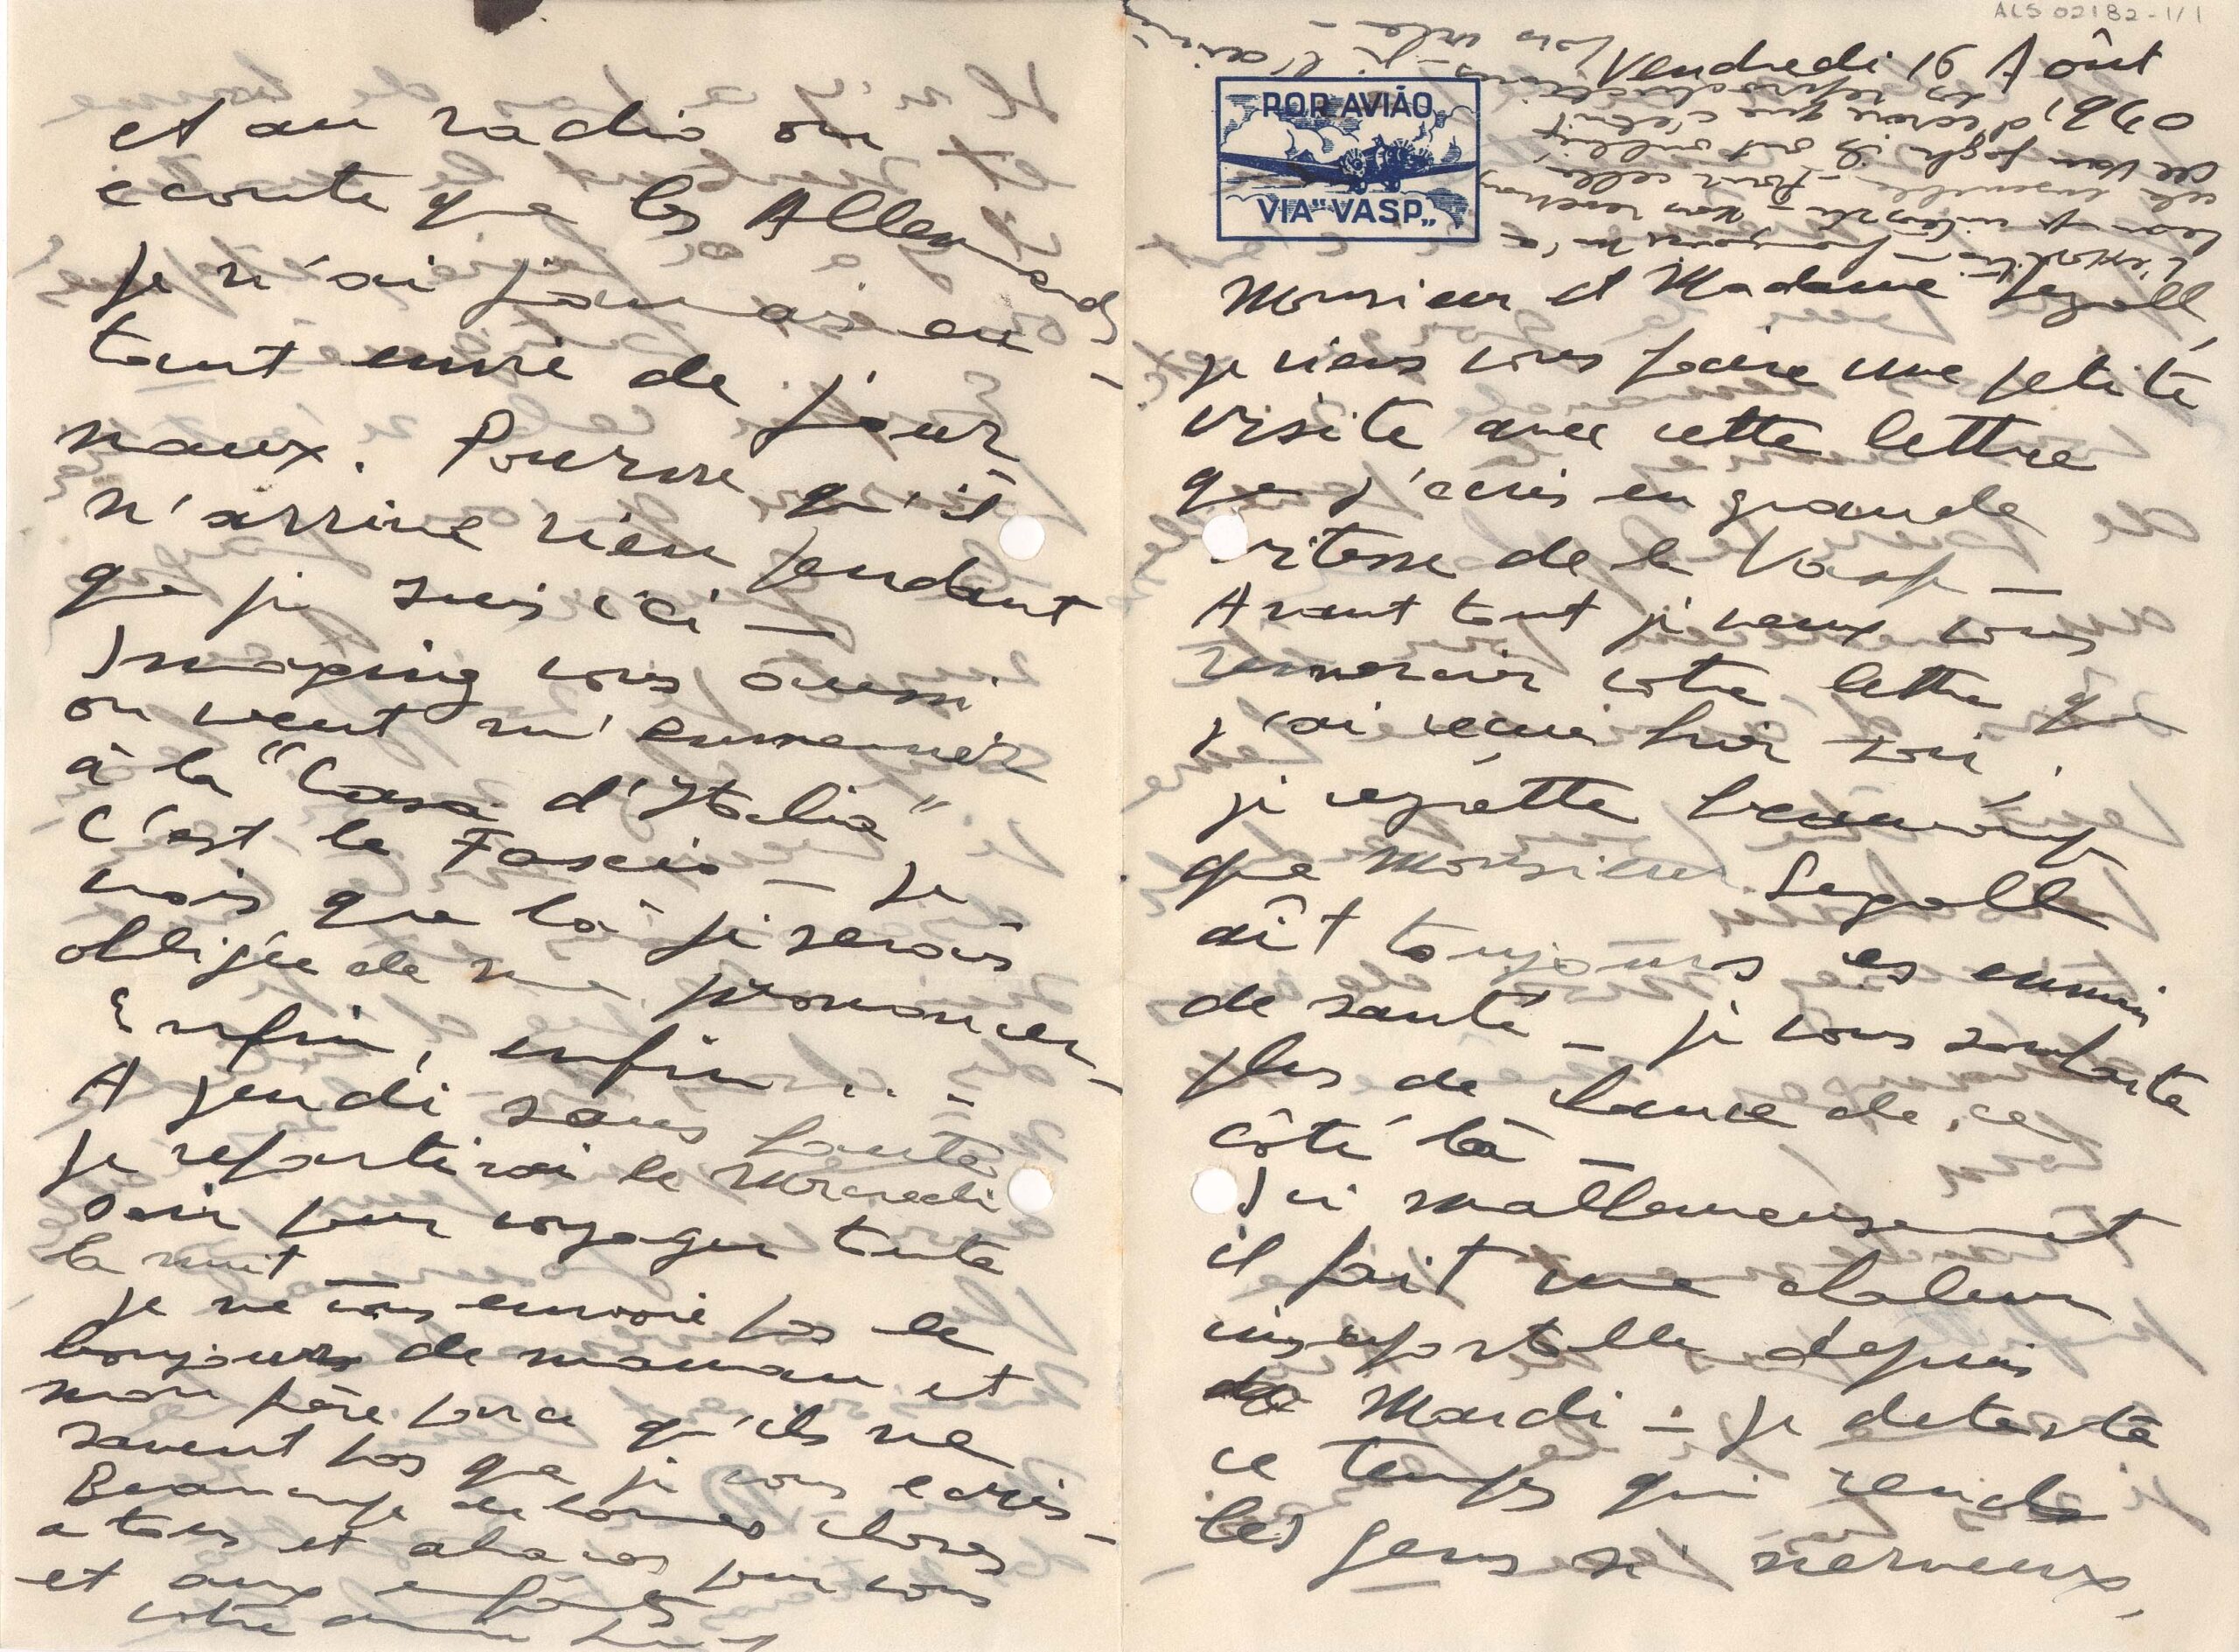 ALS 02182-1/1
Vendredi 16 Aôut
1940
POR AVIÃO
VIA "VASP"
Monsieur et Madame Segall,
je viens vous faire une petite
visite avec cette lettre
que j'écris en grande
vitesse de la Vasp —
Avant tout je veux vous
remercier votre lettre que
j'ai reçue hier soir,
je regrètte beaucoup
que Monsieur Segall
aît toujours ces ennuis
de santé — je vous souhaite
plus de chance de ce
côté là —
Ici malheureusement
il fait une chaleur
insuportable depuis
Mardi — je deteste
ce temps qui rends
les gens si nerveux,
et au radio on
ecoute que les Allemands
je n'ai jamais eu —
tant envie de jour-
naux. Pourvu qu'il
n'arrive rien pendant
que je suis ici —
Imaginez vous aussi
on veut m'emmener
à la "Casa d'Italia"
C'est le Fascio — je
vois que là je serais
obligée de me prononcer —
Enfin, enfin ...
A jeudi sans faute
je repartirai le Mercredi
soir pour voyager toute
la nuit —
je ne vous envoie pas le
bonjours de maman et
mon père parce qu'ils ne
savent pas que je vous ecris —
Beaucoup de bonnes choses
a tous et abraços pour vous
et aux enfants
votre amie
L'exposition française m'a
beaucoup intéressée — Nous reverrons
cela ensemble — Pour celle
de Van Gogh ils ont oublié
d'ecrire que c'etait
des reproductions